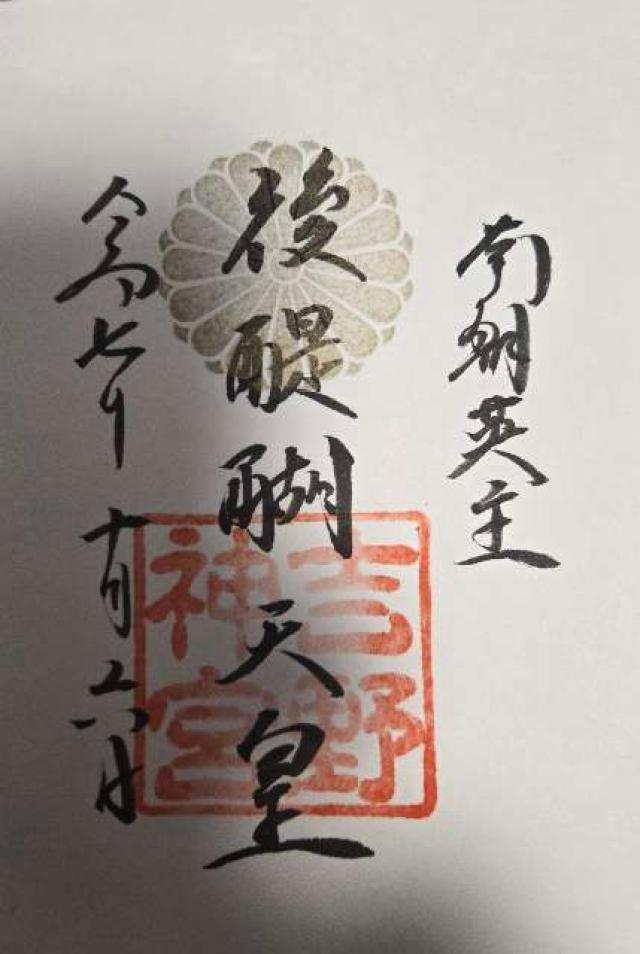 南朝英主
後醍醐天皇
令和七年 十月二六日
吉野
神宮